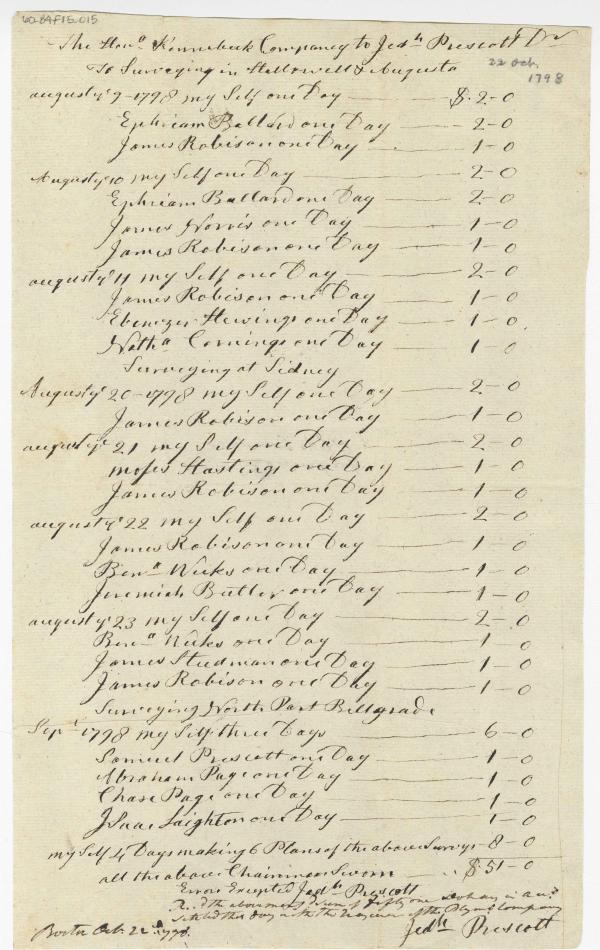 60.84F15.015
The Honᵈ Kennebeck Companey to Jedʰ Prescott Dr
To Surveying in Hellowell & Augusta
22 Oct,
1798
august yᵉ 9-1798 my Self one Day — $.2-0
Ephriam Ballard one Day — 2-0
James Robison one Day — 1-0
August yᵉ 10 my Self one Day — 2-0
Ephriam Ballard one Day — 2-0
James Norris one Day — 1-0
James Robison one Day — 1-0
august yᵉ 11 my Self one Day — 2-0
James Robison one Day — 1-0
Ebenezer Hewings one Day — 1-0
Nathᵃ Comings one Day — 1-0
Surveying at Sidney
August yᵉ 20-1798 my Self one Day — 2-0
James Robison one Day — 1-0
august yᵉ 21 my Self one Day — 2-0
moses Hastings one Day — 1-0
James Robison one Day — 1-0
august yᵉ 22 my Self one Day — 2-0
James Robison one Day — 1-0
Benᵃ Weeks one Day — 1-0
Jeremiah Butler one Day — 1-0
august yᵉ 23 my Self one Day — 2-0
Benᵃ Weeks one Day — 1-0
James Studman one Day — 1-0
James Robison one Day — 1-0
Surveying North Part Bellgrade
Sepᵗ 1798 my Self three Days — 6-0
Samuel Prescott one Day — 1-0
Abraham Page one Day — 1-0
Chase Page one Day — 1-0
Isaac Laighton one Day — 1-0
my Self 4 Days making 6 Plans of the above Surveys - 8-0
all the above Chainmen Sworn — $.51-0
Errors Excepted Jedʰ Prescott
the above sum of Fifty one dollars in
Settled this day with the Treasurer of the Plymᵒ Company
Jedʰ Prescott
Boston Oct. 22ᵈ 1798.